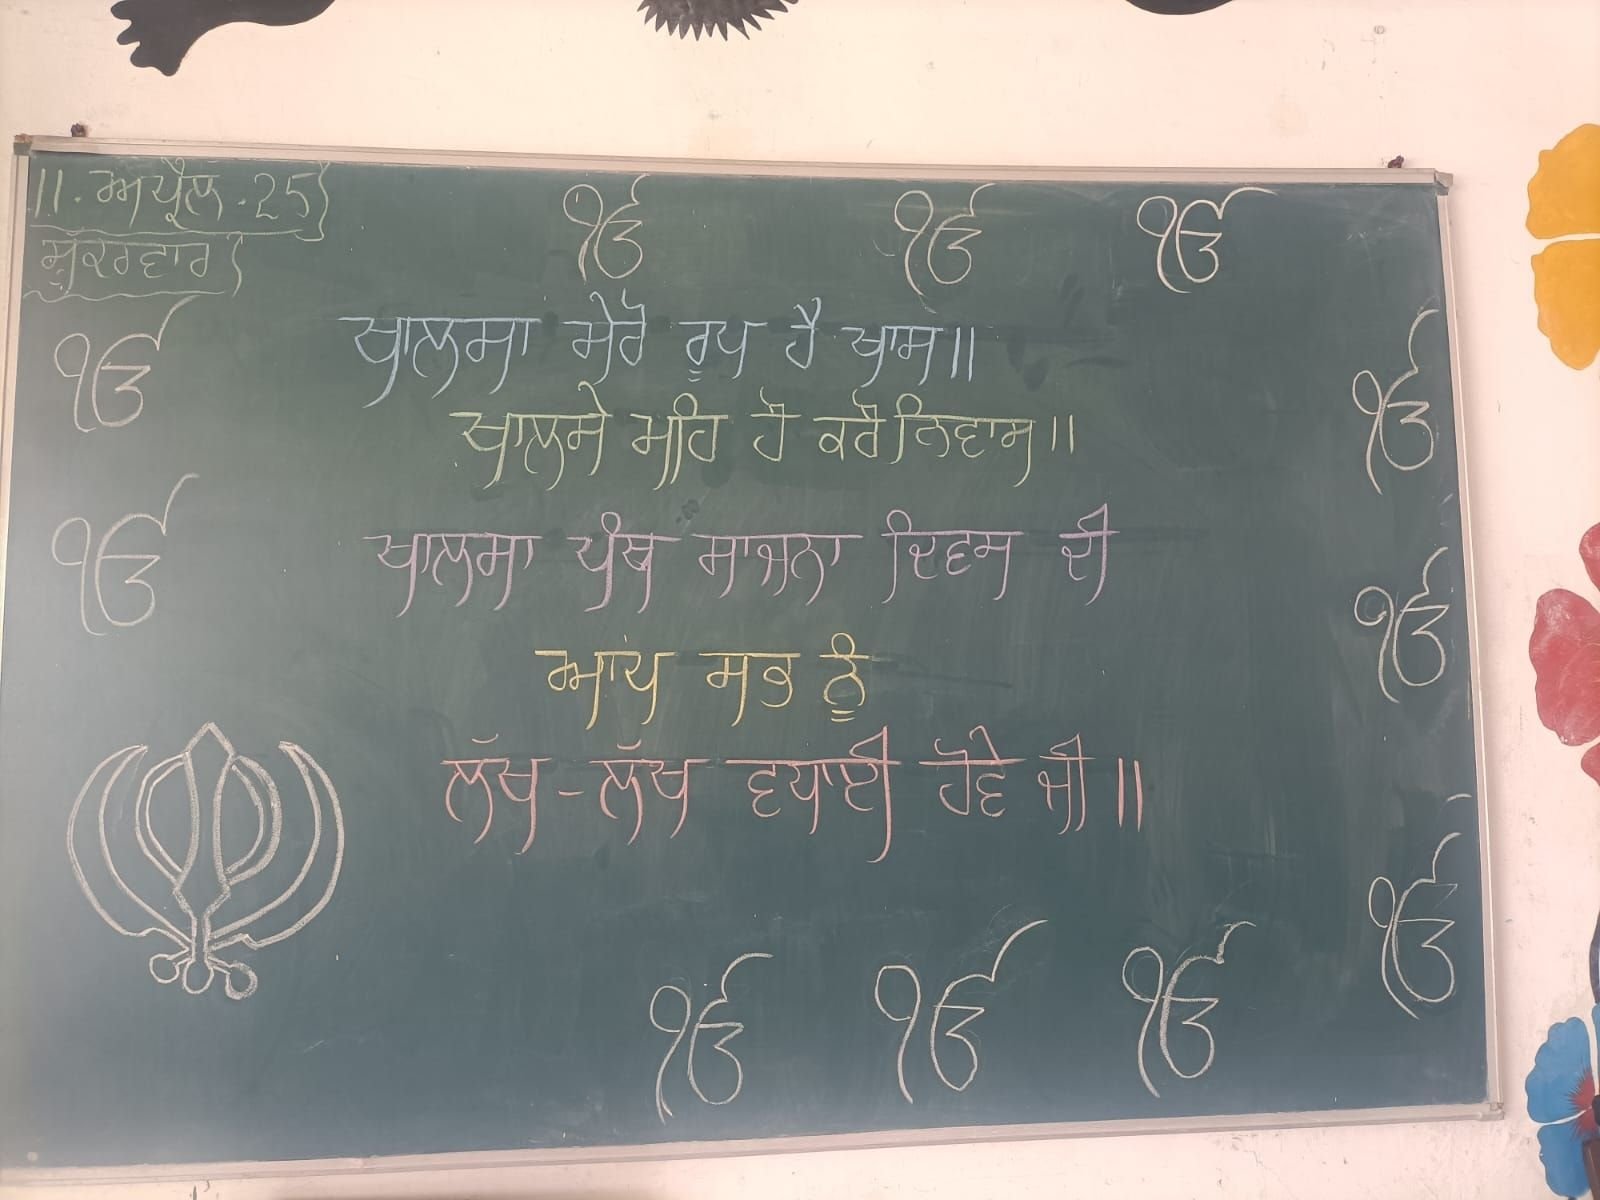 11. ਅਪ੍ਰੈਲ - 25
ਸ਼ੁੱਕਰਵਾਰ
ੴ ੴ ੴ
ੴ
ੴ
ਖਾਲਸਾ ਮੇਰੋ ਰੂਪ ਹੈ ਖਾਸ॥
ਖਾਲਸੇ ਮਹਿ ਹੌ ਕਰੌ ਨਿਵਾਸ॥
ੴ
ਖਾਲਸਾ ਪੰਥ ਸਾਜਨਾ ਦਿਵਸ ਦੀ
ੴ
ਆਪ ਸਭ ਨੂੰ
ਲੱਖ-ਲੱਖ ਵਧਾਈ ਹੋਵੇ ਜੀ॥
ੴ
ੴ ੴ ੴ